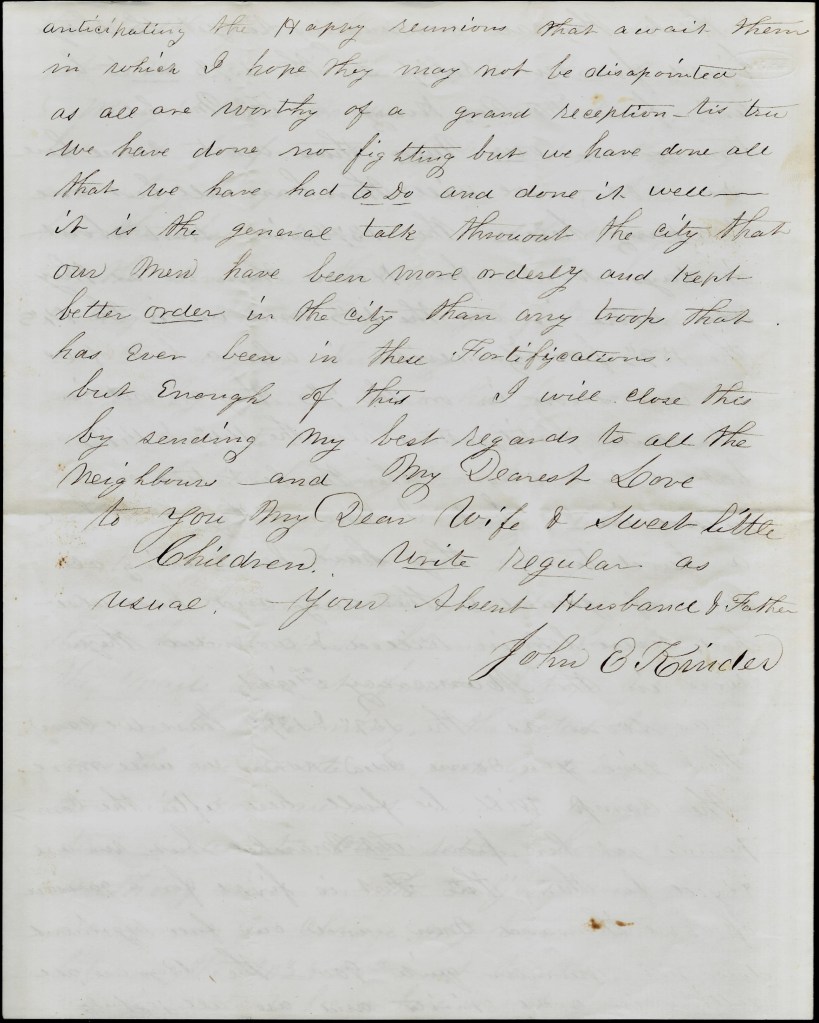 anticipating the Happy reunions that await them
in which I hope they may not be disapointed
as all are worthy of a grand reception - tis true
we have done no fighting but we have done all
that we have had to Do and done it well —
it is the general talk throuout the city that
our Men have been more orderly and Kept
better order in the city than any troops that
has Ever been in these Fortifications.
but Enough of this I will close this
by sending My best regards to all the
Neighbours and My Dearest Love
to You My Dear Wife & Sweet little
Children. Write regular as
usual. Your Absent Husband & Father
John E Kinder